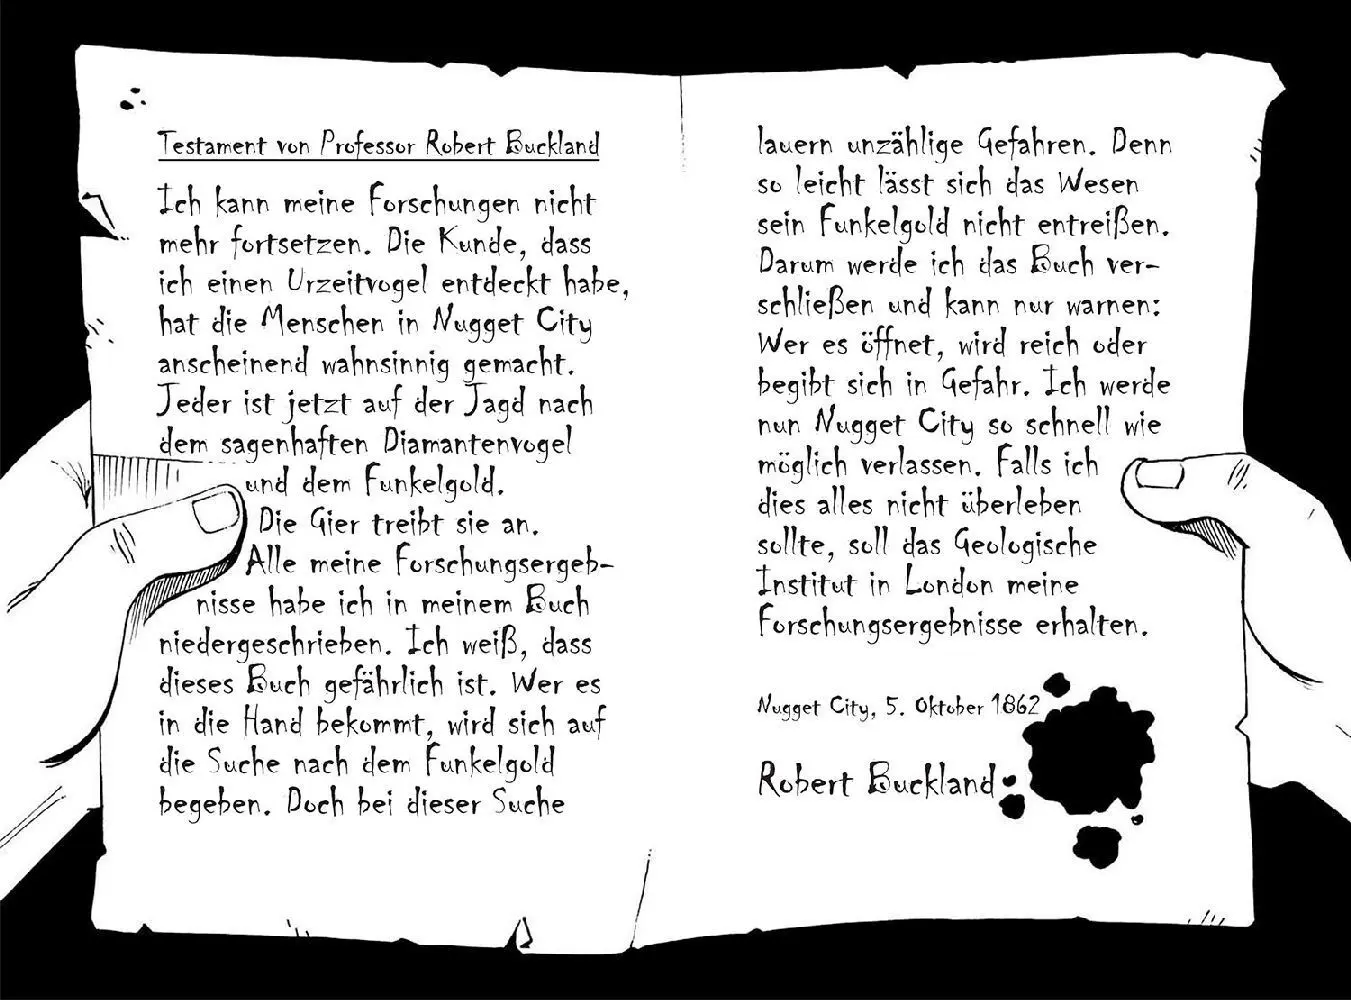 Testament von Professor Robert Buckland
Ich kann meine Forschungen nicht
mehr fortsetzen. Die Kunde, dass
ich einen Urzeitvogel entdeckt habe,
hat die Menschen in Nugget City
anscheinend wahnsinnig gemacht.
Jeder ist jetzt auf der Jagd nach
dem sagenhaften Diamantenvogel
und dem Funkelgold.
Die Gier treibt sie an.
Alle meine Forschungsergeb-
nisse habe ich in meinem Buch
niedergeschrieben. Ich weiß, dass
dieses Buch gefährlich ist. Wer es
in die Hand bekommt, wird sich auf
die Suche nach dem Funkelgold
begeben. Doch bei dieser Suche
lauern unzählige Gefahren. Denn
so leicht lässt sich das Wesen
sein Funkelgold nicht entreißen.
Darum werde ich das Buch ver-
schließen und kann nur warnen:
Wer es öffnet, wird reich oder
begibt sich in Gefahr. Ich werde
nun Nugget City so schnell wie
möglich verlassen. Falls ich
dies alles nicht überleben
sollte, soll das Geologische
Institut in London meine
Forschungsergebnisse erhalten.
Nugget City, 5. Oktober 1862
Robert Buckland